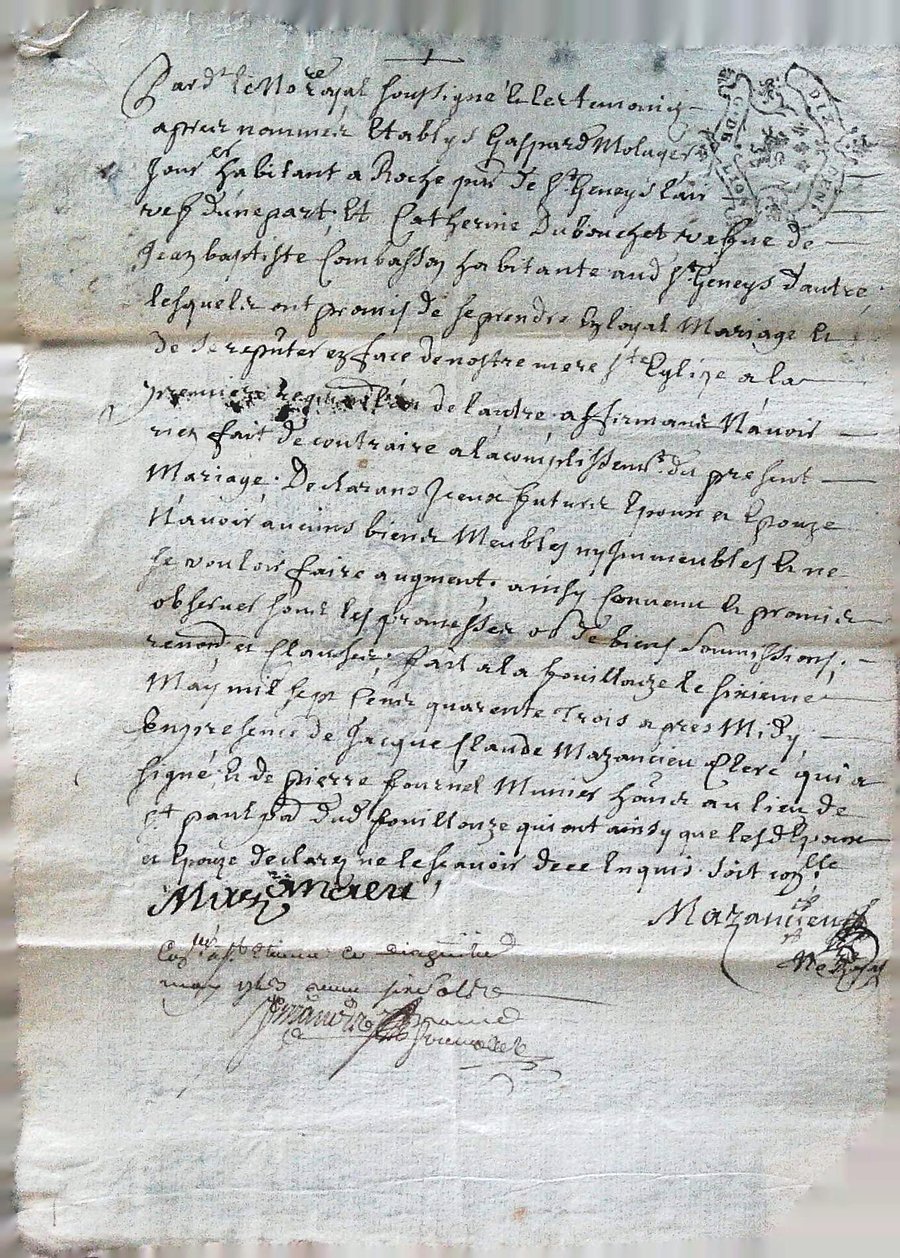 Pard.t le No.re Royal soussigné & les temoins
apres nommés Etablys Gaspard Molager
Jour.er habitant a Roche par de S.t Geneys l'air
vef d'une part, Et Catherine Dubouchet vefve de
Jean baptiste Combasson habitante aud S.t Geneys d'autre
lesquels ont promis de se prendre en loyal Mariage &
de se reputer en face de nostre mere S.te Eglize a la
premiere de l'autre affirmans N'avoir
rien fait de contraire a l'acomplissem.t du present
Mariage. Declarans Iceux futurs Epoux et Epouze
N'avoir aucuns biens Meubles ny immeubles & ne
se vouloir faire augment, ainsy convenu & promis
observer sous les promesses ob de biens soumissions,
renon et Clauses, fait a la fouillouze le sixieme
May mil sept Cens quarente trois apres Midy,
En presence de Jacque Claude Mazancieu Clerc qui a
signé & de pierre fournel Munier habns au lieu de
S.t paul pad dud fouillouze qui ont ainsy que lesd Epoux
et Epouze declarez ne le scavoir de ce Enquis. soit con.lle
Mazancieu
Mazancieu
No.re Royal
Con.llé a S.t Etienne ce
may